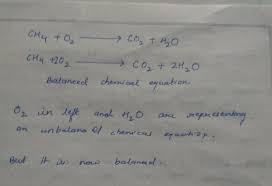 CH4 + O2 ⟶ CO2 + H2O
CH4 + 2O2 ⟶ CO2 + 2H2O
Balanced chemical equation
O2 in left and H2O are representing
an unbalanced chemical equation.
But it is now balanced.